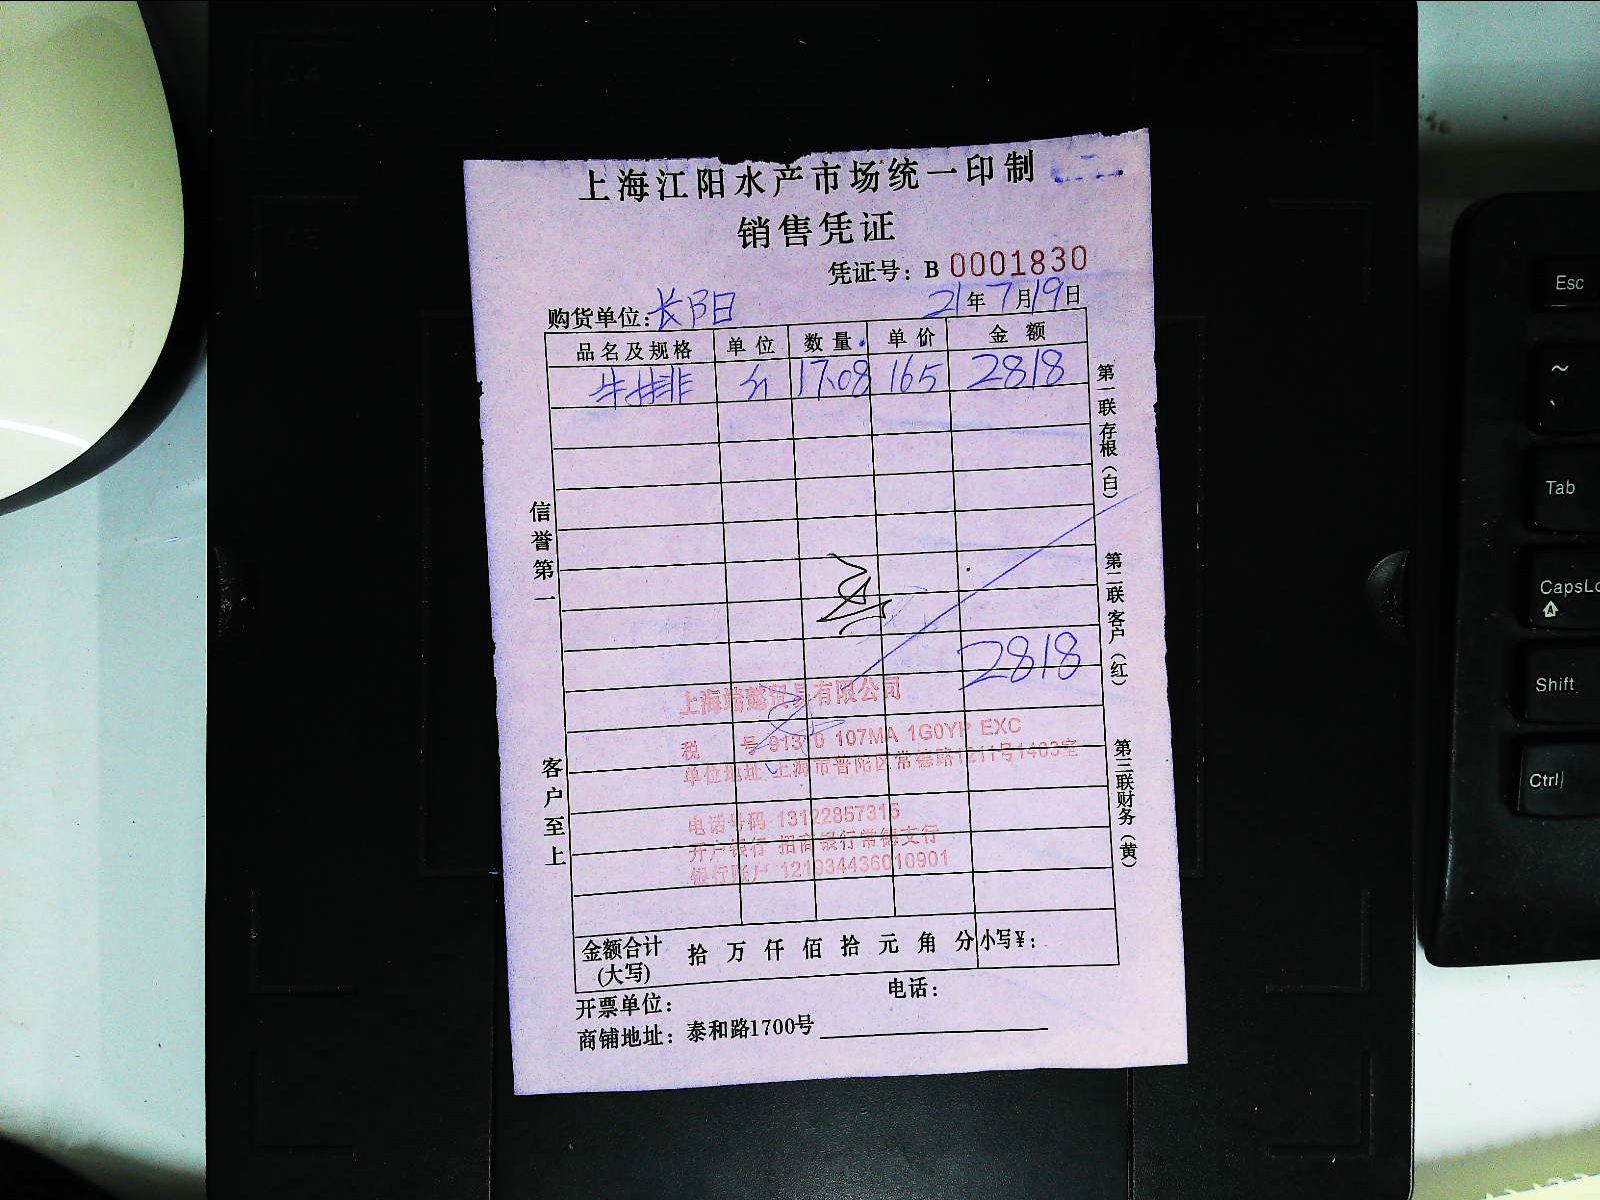 上海江阳水产市场统一印制
销售凭证
凭证号：B 0001830
购货单位：长阳 21年7月19日
品名及规格 单位 数量 单价 金额
牛排 斤 17.08 165 2818
2818
信誉第一
客户至上
第一联存根（白）
第二联客户（红）
第三联财务（黄）
贸易有限公司
税 号 107MA 1G0YP EXC
单位地址 上海市普陀区常德路1211号1403室
电话号码 13122857315
开户银行 招商银行常德支行
银行账户 121934436010901
金额合计(大写) 拾 万 仟 佰 拾 元 角 分 小写¥：
开票单位： 电话：
商铺地址：泰和路1700号
Esc
~
`
Tab
CapsLo
A
Shift
Ctrl